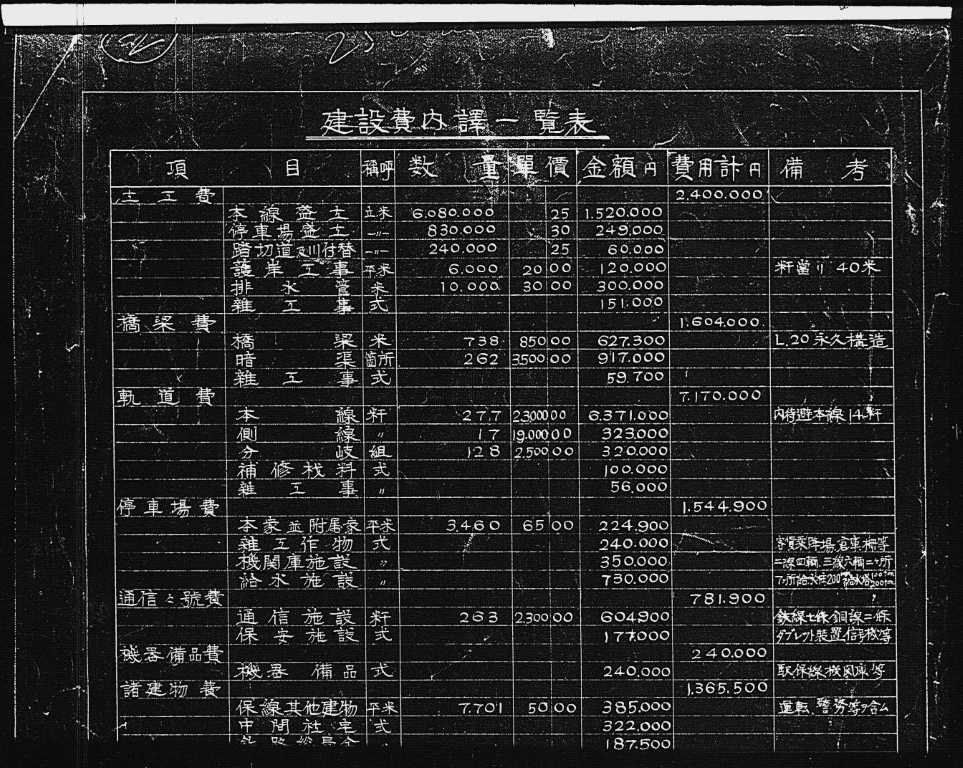 建設費内譯一覧表
項 目 稱呼 数 量 單 價 金額円 費用計円 備 考
土工費 2.400.000
本線盛土 立米 6.080.000 25 1.520.000
停車場盛土 〃 830.000 30 249.000
踏切道及川付替 〃 240.000 25 60.000
護岸工事 平米 6.000 20 00 120.000 粁當リ 40米
排水管 米 10.000 30 00 300.000
雑工事 式 151.000
橋梁費 1.604.000
橋梁 米 738 850 00 627.300 L.20永久構造
暗渠 箇所 262 3.500 00 917.000
雑工事 式 59.700
軌道費 7.170.000
本線 粁 277 23.000 00 6.371.000 内待避本線14粁
側線 〃 17 19.000 00 323.000
分岐 組 128 2.500 00 320.000
補修材料 式 100.000
雑工事 〃 56.000
停車場費 1.544.900
本家並附属家 平米 3.460 65 00 224.900
雑工作物 式 240.000
機関庫施設 〃 350.000
給水施設 〃 730.000
通信信號費 781.900
通信施設 粁 263 2.300 00 604.900
保安施設 式 177.000 タブレット装置
機器備品費 240.000
機器備品 式 240.000
諸建物費 1.365.500
保線其他建物 平米 7.701 50 00 385.000 運転、警務等ヲ含ム
中間社宅 式 322.000
187.500